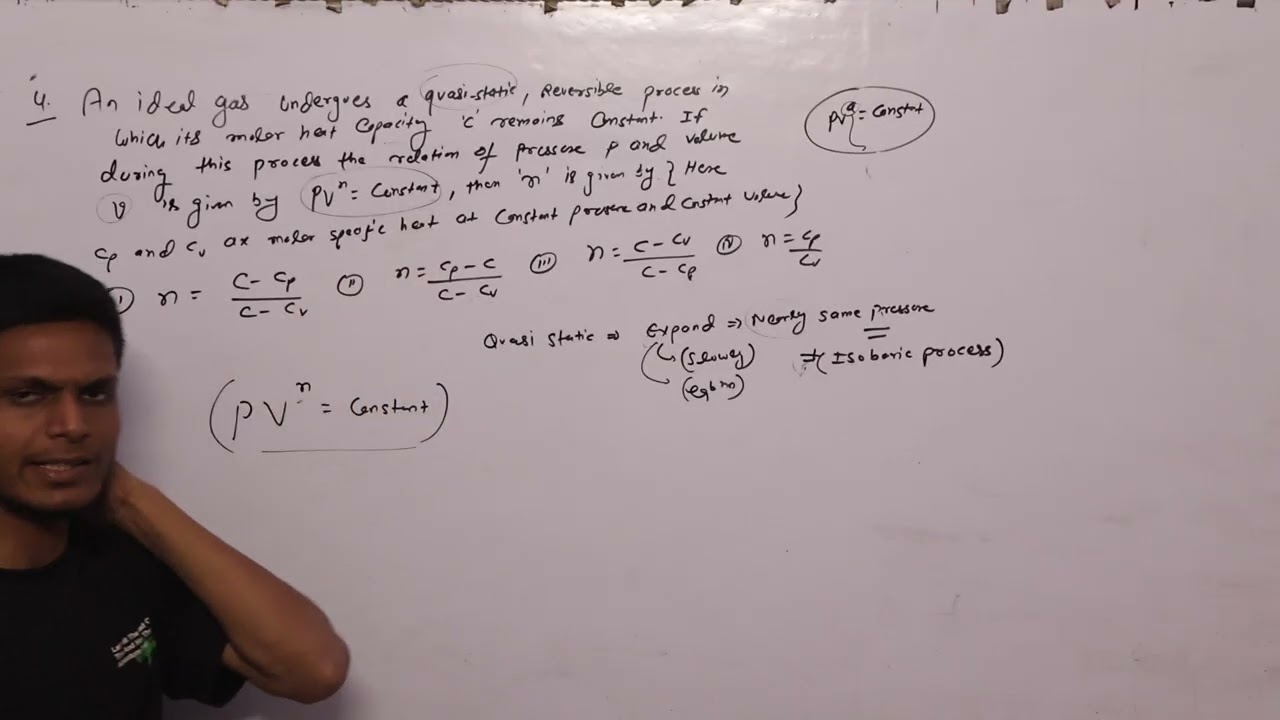 4. An ideal gas undergoes a quasi-static, reversible process in
which its molar heat capacity 'c' remains constant. If
during this process the relation of pressure p and volume
V is given by PVⁿ = Constant, then 'n' is given by { Here
Cp and Cv are molar specific heat at constant pressure and constant volume}
PVᵃ = constant
(I) n = (C - Cp)/(C - Cv) (II) n = (Cp - C)/(C - Cv) (III) n = (C - Cv)/(C - Cp) (IV) n = Cp/Cv
Quasi static ⇒ Expand ⇒ Nearly same pressure
(slowly) ⇒ (Isobaric process)
(eqbm)
(PVⁿ = Constant)